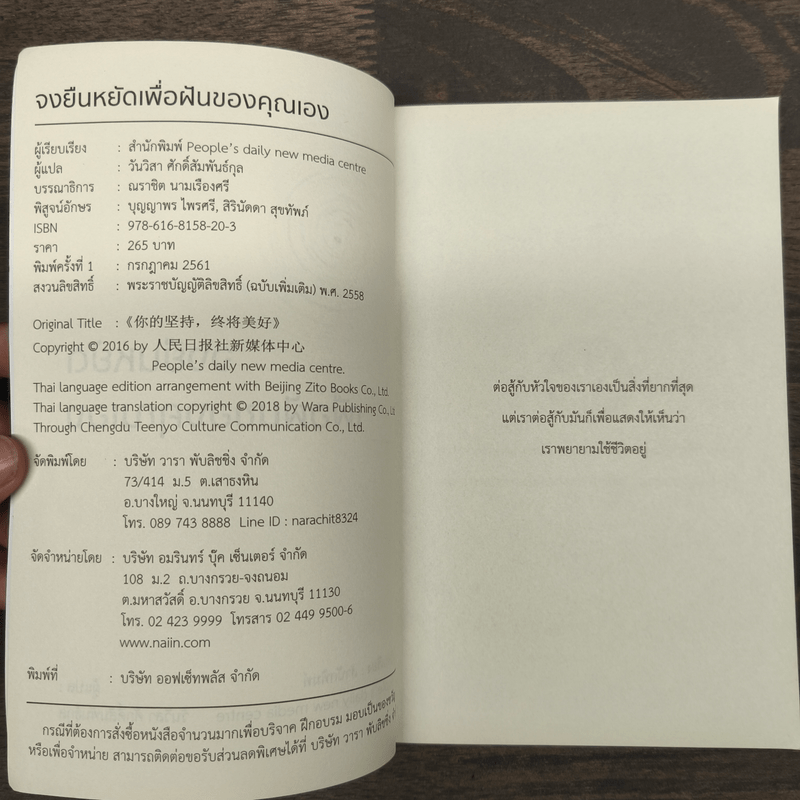 จงยืนหยัดเพื่อฝันของคุณเอง
ผู้เรียบเรียง : สำนักพิมพ์ People's daily new media centre
ผู้แปล : วันวิสา ศักดิ์สัมพันธ์กุล
บรรณาธิการ : ณราชิต นามเรืองศรี
พิสูจน์อักษร : บุญญาพร ไพรศรี, สิรินัดดา สุขทัพภ์
ISBN : 978-616-8158-20-3
ราคา : 265 บาท
พิมพ์ครั้งที่ 1 : กรกฎาคม 2561
สงวนลิขสิทธิ์ : พระราชบัญญัติลิขสิทธิ์ (ฉบับเพิ่มเติม) พ.ศ. 2558
Original Title : 《你的坚持，终将美好》
Copyright © 2016 by 人民日报社新媒体中心
People's daily new media centre.
Thai language edition arrangement with Beijing Zito Books Co., Ltd.
Thai language translation copyright © 2018 by Wara Publishing Co., Ltd
Through Chengdu Teenyo Culture Communication Co., Ltd.
จัดพิมพ์โดย : บริษัท วารา พับลิชชิ่ง จำกัด
73/414 ม.5 ต.เสาธงหิน
อ.บางใหญ่ จ.นนทบุรี 11140
โทร. 089 743 8888 Line ID : narachit8324
จัดจำหน่ายโดย : บริษัท อมรินทร์ บุ๊ค เซ็นเตอร์ จำกัด
108 ม.2 ถ.บางกรวย-จงถนอม
ต.มหาสวัสดิ์ อ.บางกรวย จ.นนทบุรี 11130
โทร. 02 423 9999 โทรสาร 02 449 9500-6
www.naiin.com
พิมพ์ที่ : บริษัท ออฟเซ็ทพลัส จำกัด
กรณีที่ต้องการสั่งซื้อหนังสือจำนวนมากเพื่อบริจาค ฝึกอบรม มอบเป็นของขวัญ
หรือเพื่อจำหน่าย สามารถติดต่อขอรับส่วนลดพิเศษได้ที่ บริษัท วารา พับลิชชิ่ง
ต่อสู้กับหัวใจของเราเองเป็นสิ่งที่ยากที่สุด
แต่เราต่อสู้กับมันก็เพื่อแสดงให้เห็นว่า
เราพยายามใช้ชีวิตอยู่